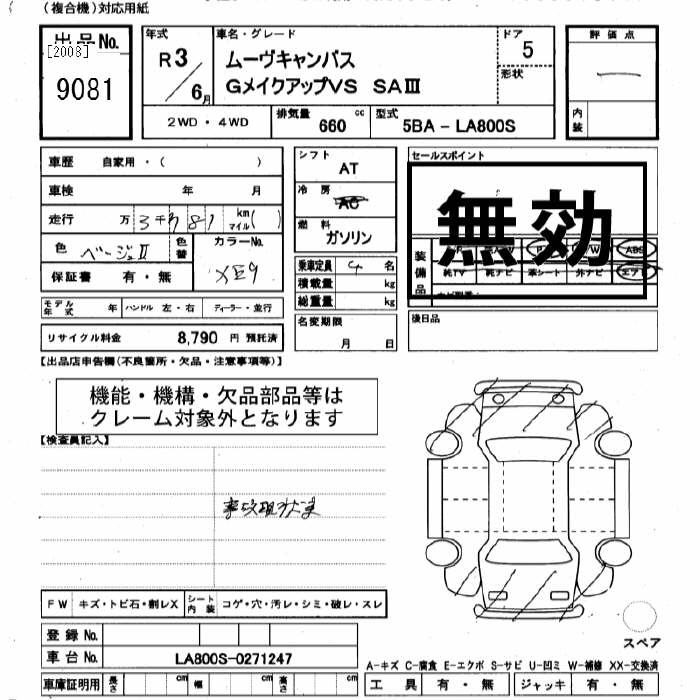 （複合機）対応用紙
出品No.
[2008]
9081
年式
R3/6月
車名・グレード
ムーヴキャンバス
GメイクアップVS SAⅢ
ドア
5
形状
評価点
内装
2WD・4WD
排気量 660 cc
型式 5BA - LA800S
車歴 自家用・（ ）
車検 年 月
走行 万3千781 km マイル( )
色 ベージュⅡ 色替
カラーNo.
保証書 有・無
モデル年式 年 ハンドル 左・右 ディーラー・並行
リサイクル料金 8,790 円 預託済
シフト
AT
冷房
AC
燃料
ガソリン
乗車定員 4 名
積載量 kg
総重量 kg
名変期限
月 日
セールスポイント
無効
装備品
ABS
純TV 純ナビ 革シート 外ナビ エアB
後日品
【出品店申告欄（不良箇所・欠品・注意事項等）】
機能・機構・欠品部品等は
クレーム対象外となります
【検査員記入】
事故現状車
FW キズ・トビ石・割レX
シート内装 コゲ・穴・汚レ・シミ・破レ・スレ
登録No.
車台No. LA800S-0271247
車庫証明用 長さ cm 幅 cm 高さ cm
スペア
A-キズ C-腐食 E-エクボ S-サビ U-凹ミ W-補修 XX-交換済
工具 有・無 ジャッキ 有・無